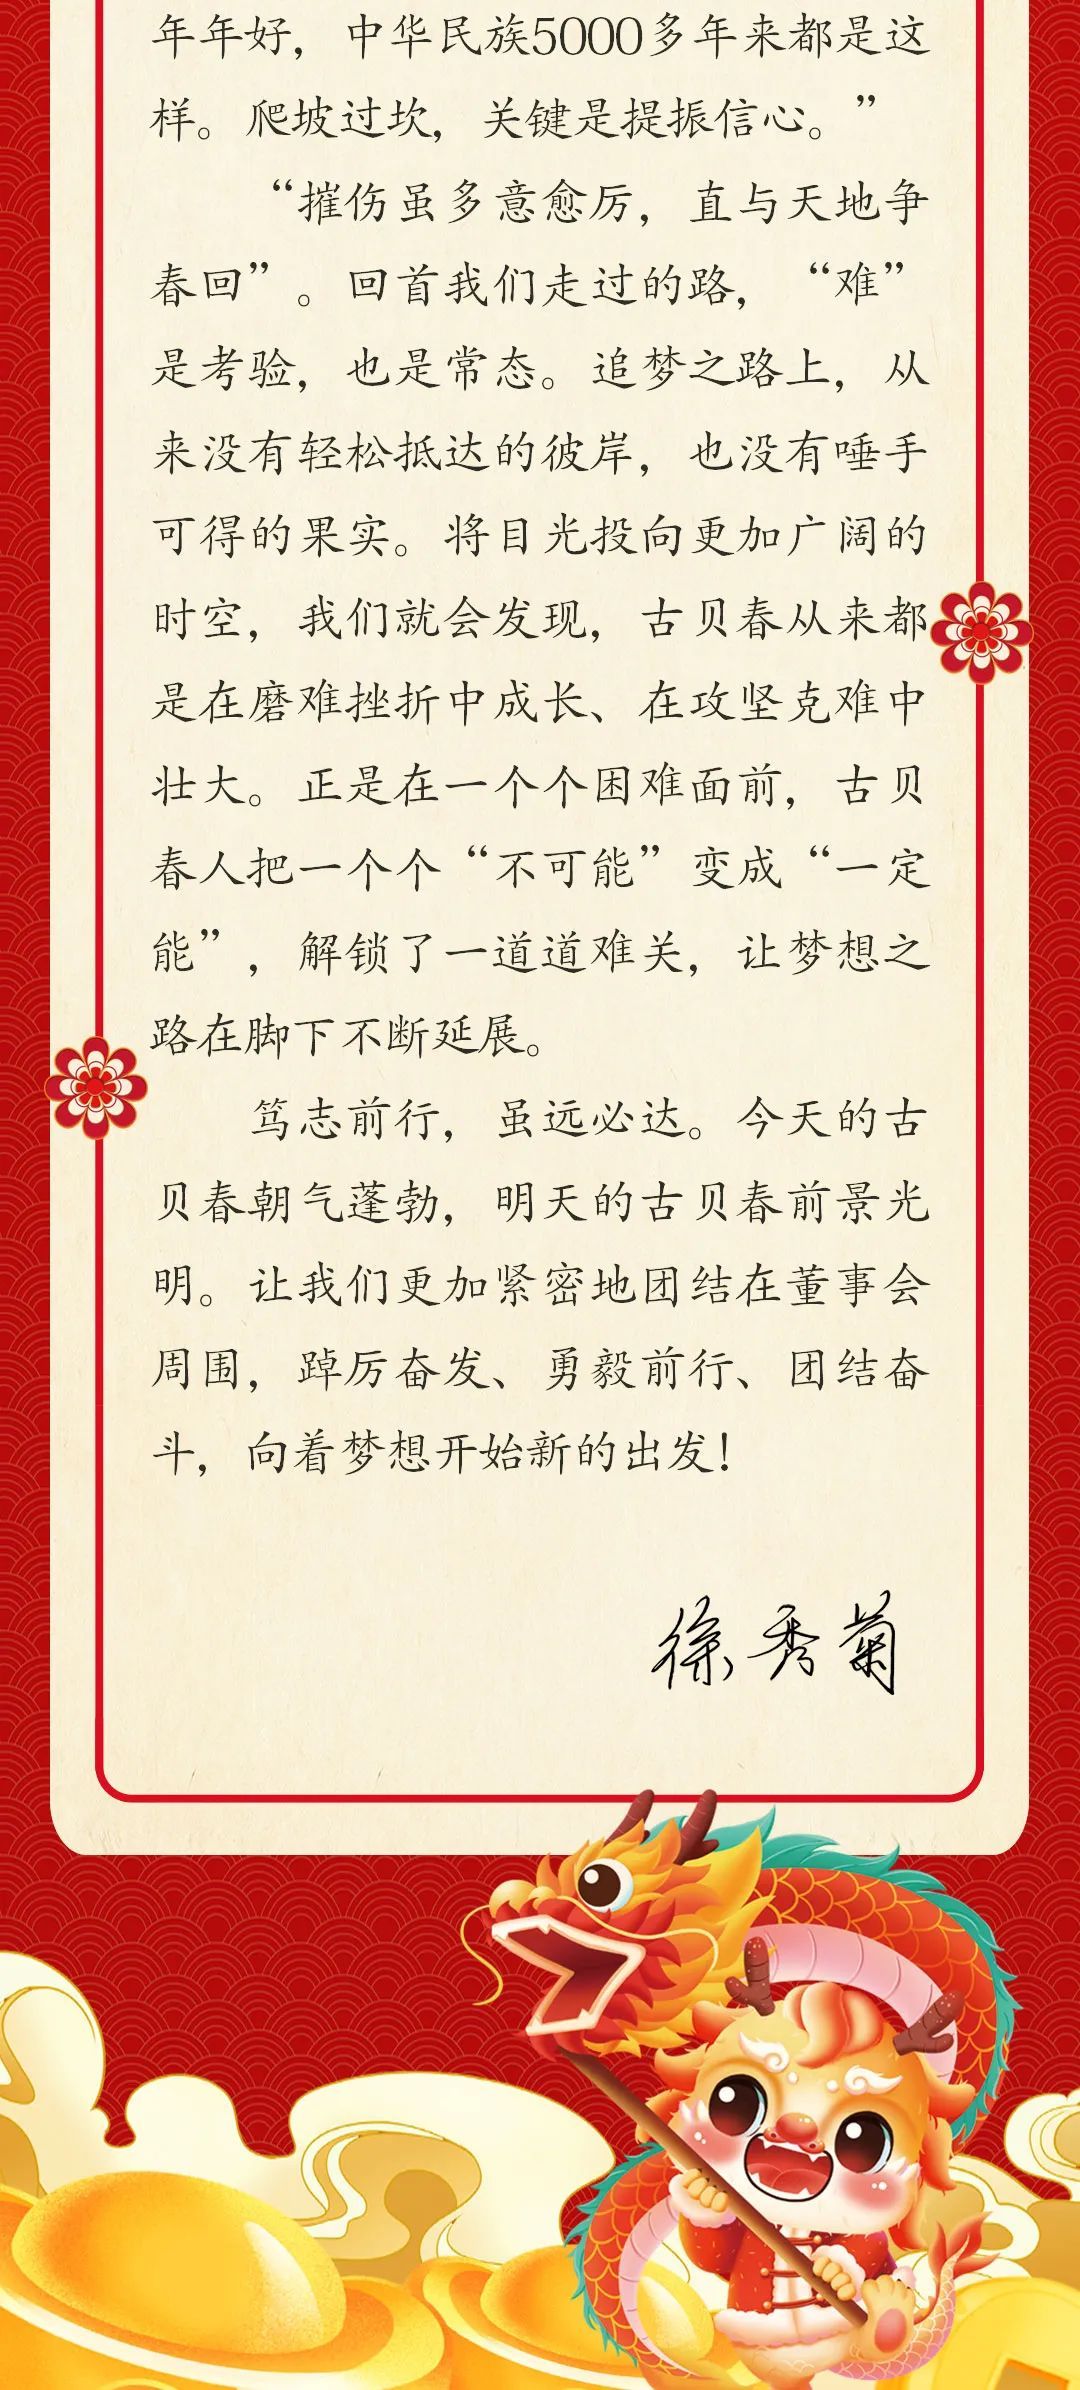 年年好，中华民族5000多年来都是这
样。爬坡过坎，关键是提振信心。”
“摧伤虽多意愈厉，直与天地争
春回”。回首我们走过的路，“难”
是考验，也是常态。追梦之路上，从
来没有轻松抵达的彼岸，也没有唾手
可得的果实。将目光投向更加广阔的
时空，我们就会发现，古贝春从来都
是在磨难挫折中成长、在攻坚克难中
壮大。正是在一个个困难面前，古贝
春人把一个个“不可能”变成“一定
能”，解锁了一道道难关，让梦想之
路在脚下不断延展。
笃志前行，虽远必达。今天的古
贝春朝气蓬勃，明天的古贝春前景光
明。让我们更加紧密地团结在董事会
周围，踔厉奋发、勇毅前行、团结奋
斗，向着梦想开始新的出发！
徐秀菊